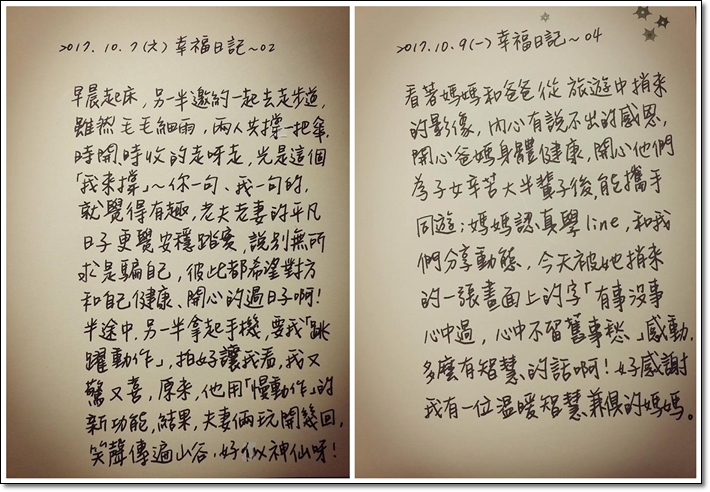 2017.10.7(六) 幸福日記~02
早晨起床，另一半邀約一起去走步道，
雖然毛毛細雨，兩人共撐一把傘，
時開時收的走呀走，光是這個
「我來撐」~你一句、我一句的，
就覺得有趣，老夫老妻的平凡
日子更覺安穩踏實，說別無所
求是騙自己，彼此都希望對方
和自己健康、開心的過日子啊！
半途中，另一半拿起手機，要我「跳
躍動作」，拍好讓我看，我又
驚又喜，原來，他用「慢動作」的
新功能，結果，夫妻倆玩開幾回，
笑聲傳遍山谷，好似神仙呀！
2017.10.9(一) 幸福日記~04
看著媽媽和爸爸從旅遊中捎來
的影像，內心有說不出的感恩，
開心爸媽身體健康，開心他們
為子女辛苦大半輩子後，能攜手
同遊；媽媽認真學line，和我
們分享動態，今天被她捎來
的一張畫面上的字「有事沒事
心中過，心中不留舊事愁」感動，
多麼有智慧的話啊！好感謝
我有一位溫暖智慧兼俱的媽媽。